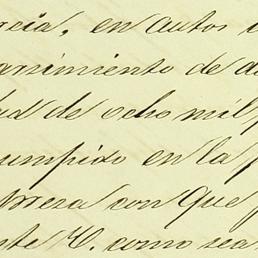 rcia, en autos
arrimiento de
de ocho mil
umpido en la
presa con que
nte C. como sea